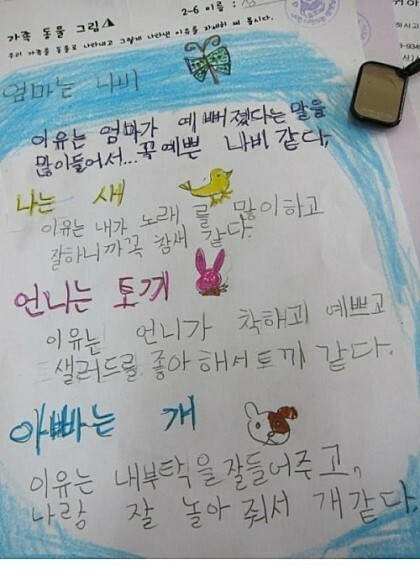 2-6 이름 :
가족 동물 그림
우리 가족을 동물로 나타내고 그렇게 나타낸 이유를 자세히 써 봅시다.
엄마는 나비
이유는 엄마가 예뻐졌다는 말을
많이들어서...꼭예쁜 나비 같다.
나는 새
이유는 내가 노래를 많이하고
잘하니까꼭 참새 같다.
언니는 토끼
이유는 언니가 착해괴 예쁘고
샐러드를 좋아해서토끼 같다.
아빠는 개
이유는 내부탁을잘들어주고,
나랑 잘 놀아줘서 개같다.